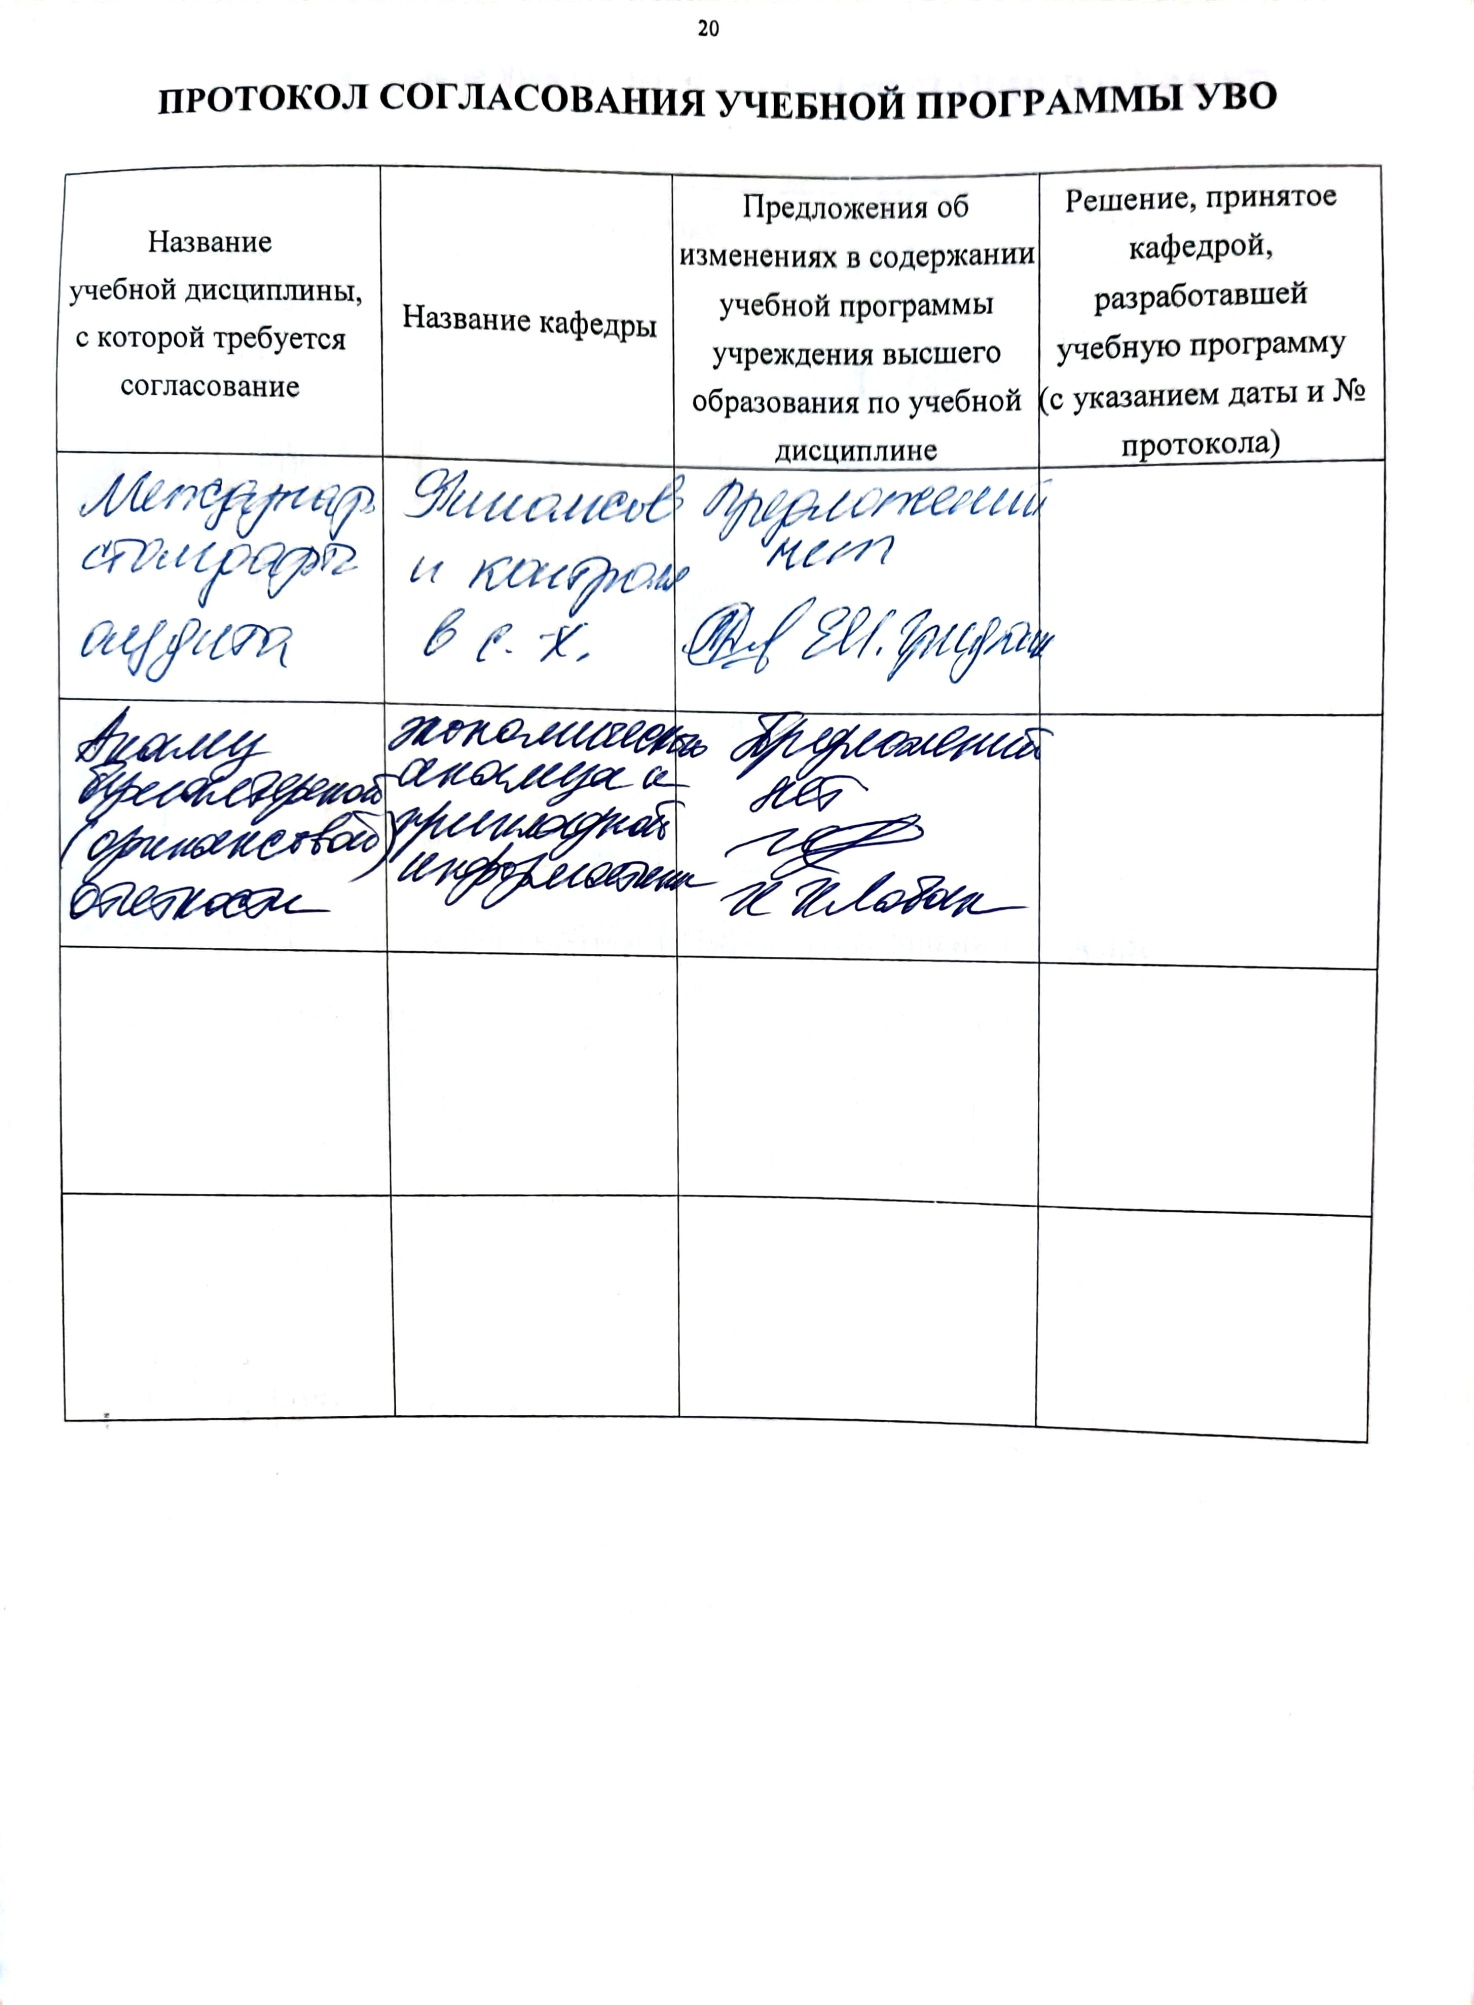 20
ПРОТОКОЛ СОГЛАСОВАНИЯ УЧЕБНОЙ ПРОГРАММЫ УВО
Название
учебной дисциплины,
с которой требуется
согласование
Название кафедры
Предложения об
изменениях в содержании
учебной программы
учреждения высшего
образования по учебной
дисциплине
Решение, принятое
кафедрой,
разработавшей
учебную программу
(с указанием даты и №
протокола)
Междунар.
стандарты
аудита
Финансов
и контроля
в с.-х.
Предложений
нет
Е.И.
Анализ
бухгалтерской
(финансовой)
отчетности
экономического
анализа и
прикладной
информатики
Предложений
нет